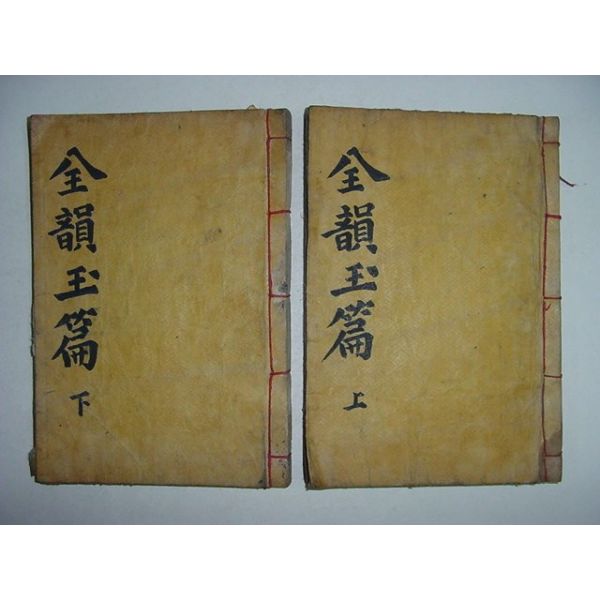 全韻玉篇
下
全韻玉篇
上